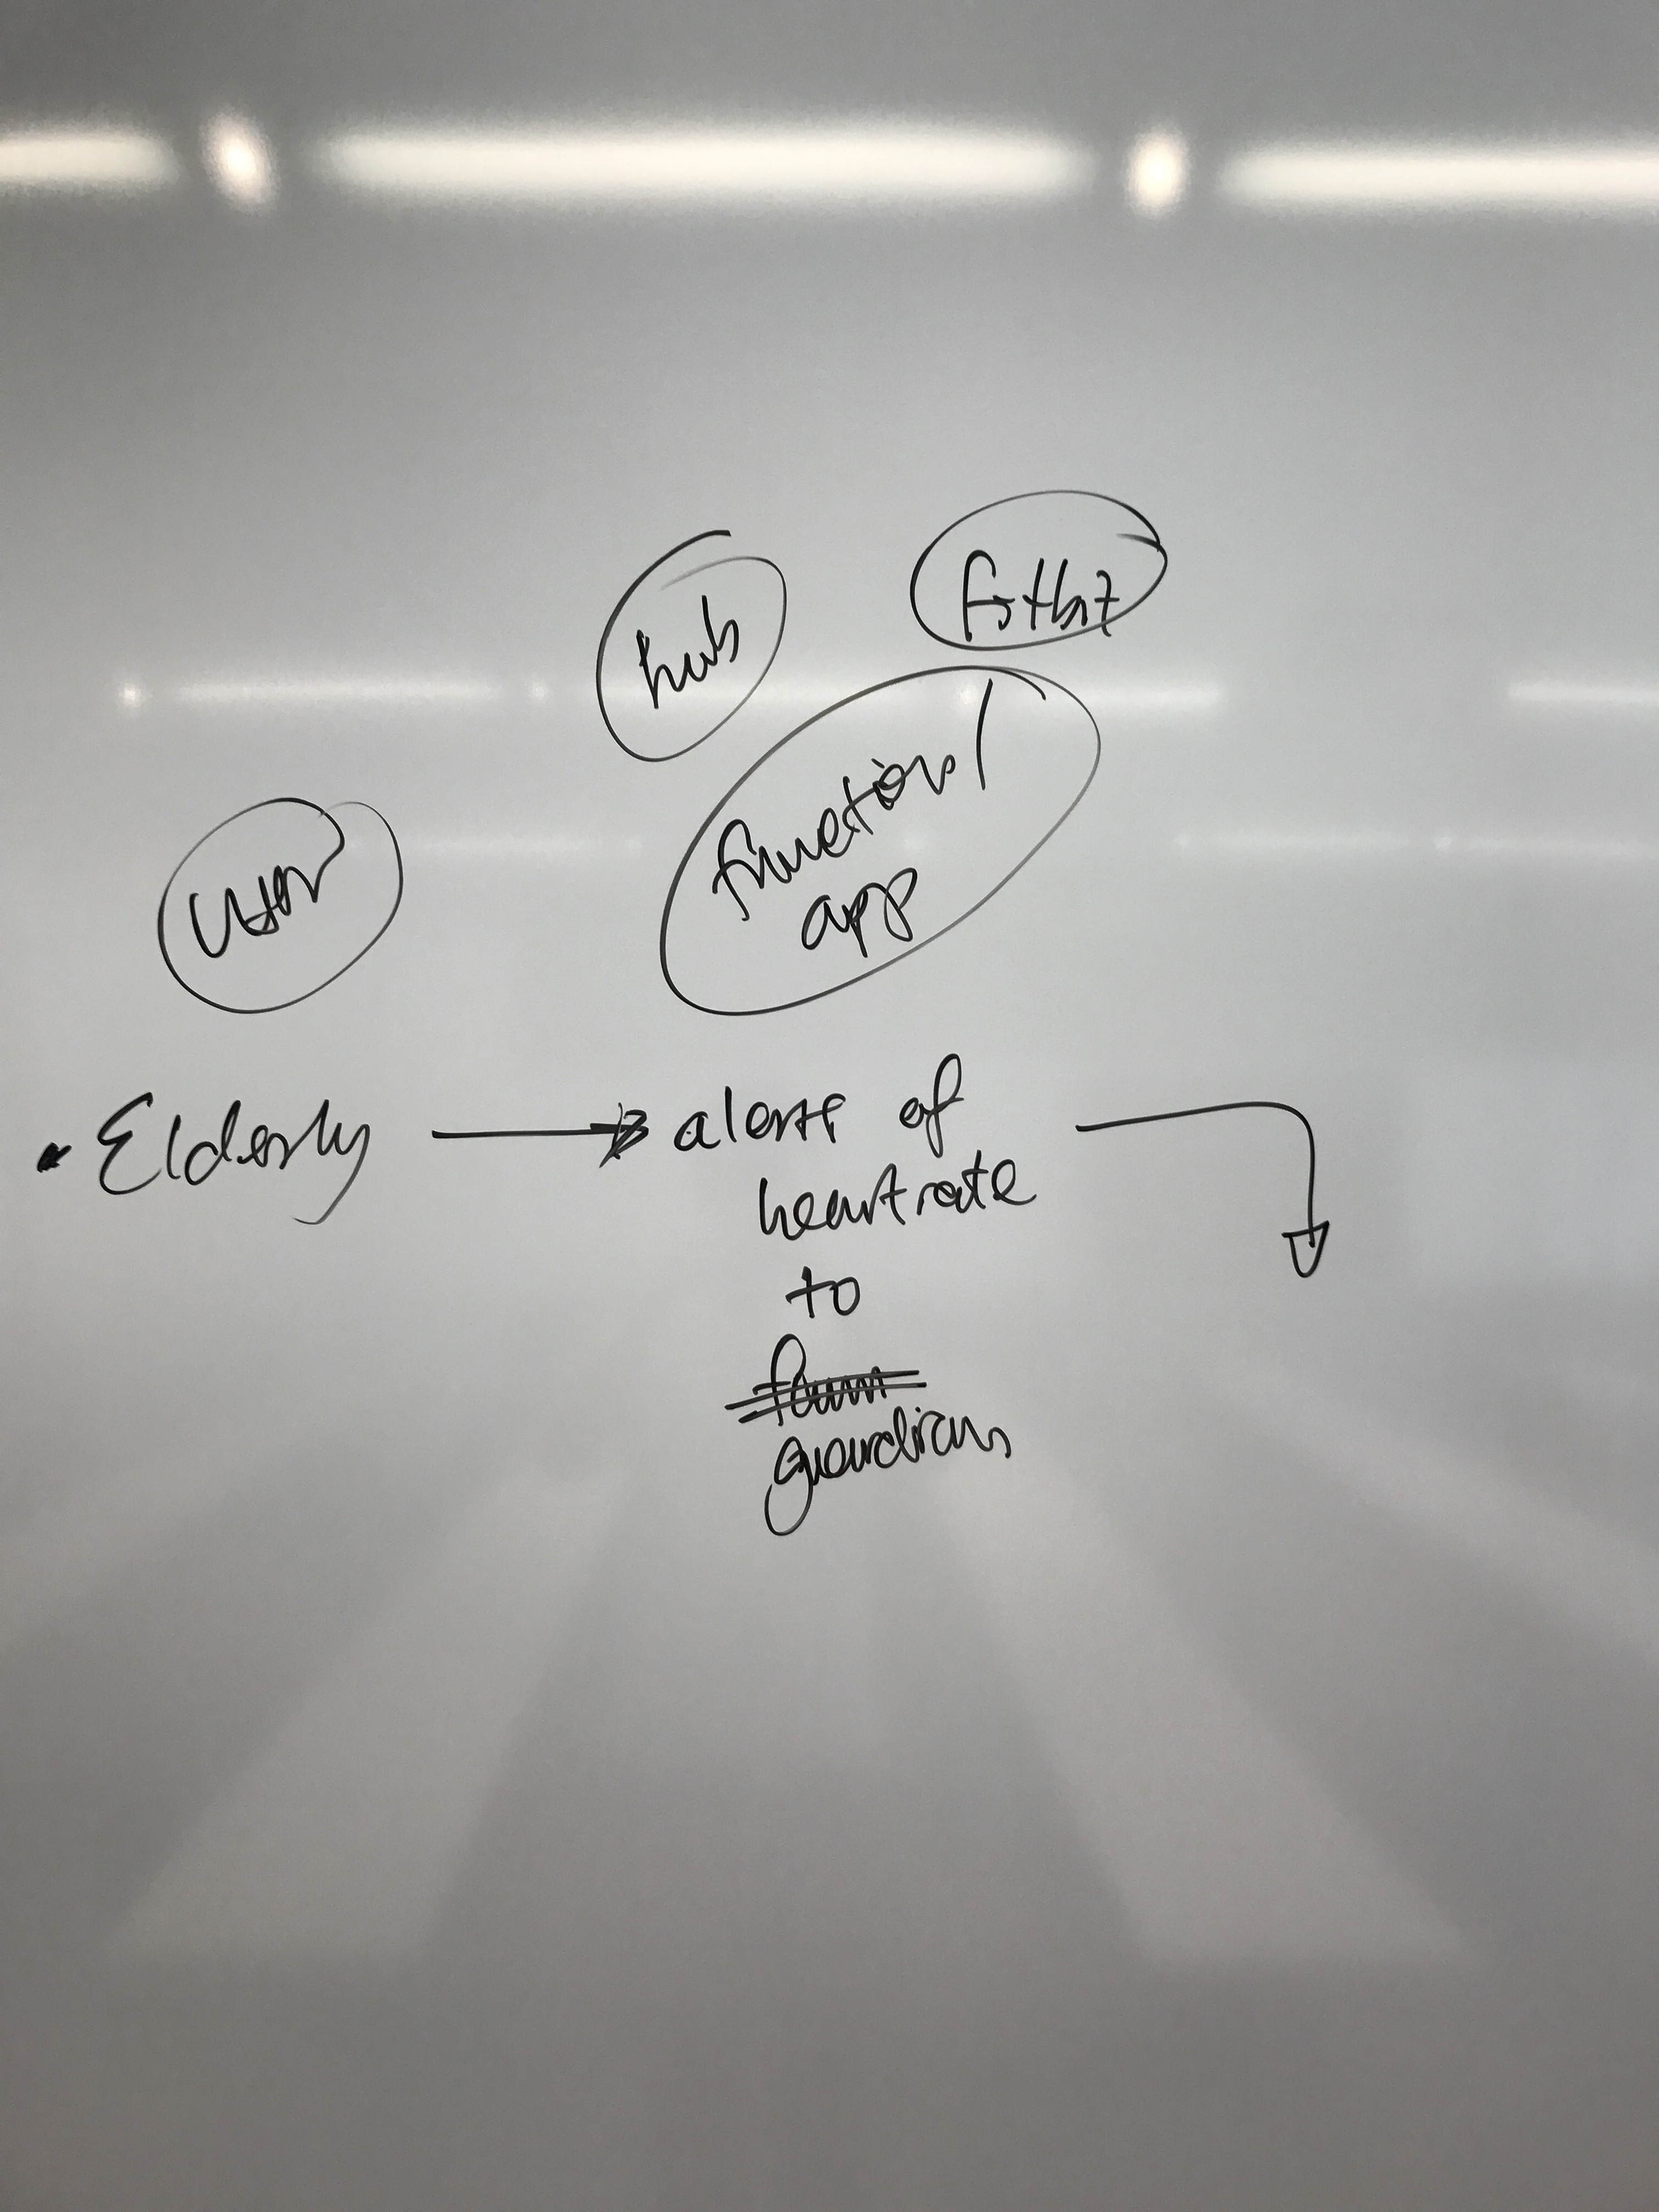 hub
fitbit
user
function/
app
• Elderly → alerts of
heartrate
to
guardian